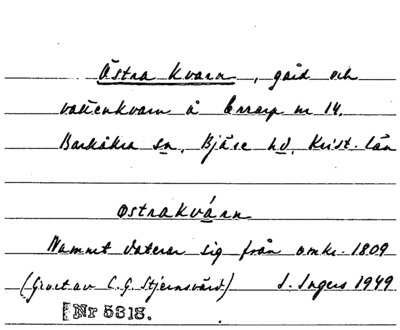 Östra kvarn, gård och
vattenkvarn å Errarp nr 14.
Barkåkra sn, Bjäre hd, Krist. län
østrakvárn
Namnet daterar sig från omkr. 1809
(Grevt av C. G. Stjernsvärd) I. Ingers 1949
[Nr 5318.